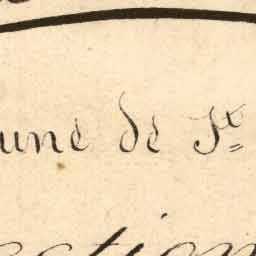 une de St
ection